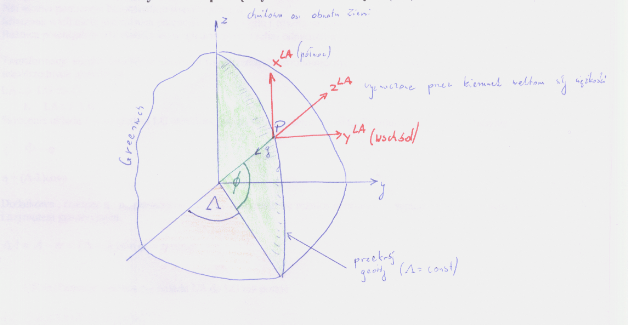 z
chwilowa oś obrotu Ziemi
x^LA (północ)
z^LA wyznaczone przez kierunek wektora siły ciężkości
P
y^LA (wschód)
g
Greenwich
Φ
Λ
y
przekrój
geoidy (Λ = const)